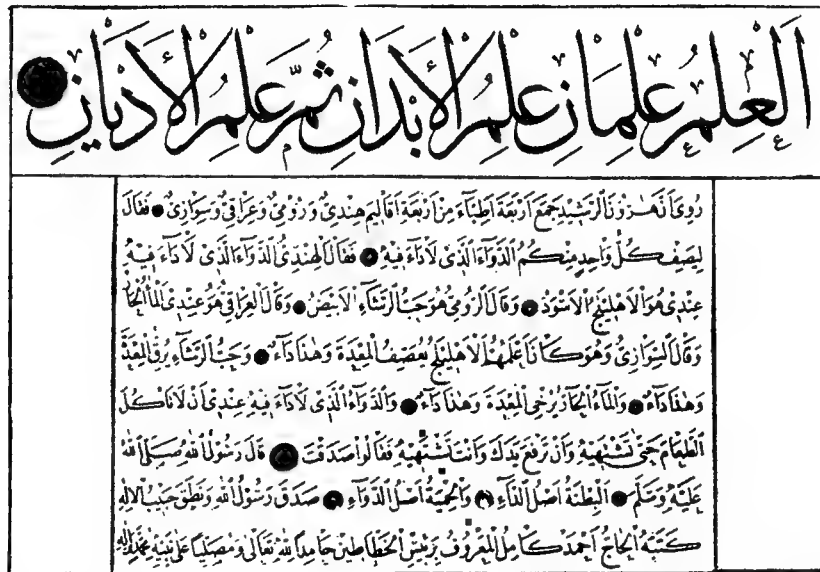 اَلْعِلْمُ عِلْمَانِ عِلْمُ الْأَبْدَانِ ثُمَّ عِلْمُ الْأَدْيَانِ
رُوِىَ اَنَّ هٰرُونَ الرَّشِيْدَ جَمَعَ اَرْبَعَةَ اَطِبَّآءَ مِنْ اَرْبَعَةِ اَقَالِيمَ هِنْدِىٌّ وَرُومِىٌّ وَعِرَاقِىٌّ وَسَوَازِىٌّ فَقَالَ
لِيَصِفْ كُلُّ وَاحِدٍ مِنْكُمُ الدَّوَآءَ الَّذِى لَا دَآءَ فِيْهِ فَقَالَ الْهِنْدِىُّ الدَّوَآءَ الَّذِى لَا دَآءَ فِيْهِ
عِنْدِى هُوَ الْاَهْلِيْلَجُ الْاَسْوَدُ وَقَالَ الرُّومِىُّ هُوَ حَبُّ الرَّشَآءِ الْاَبْيَضُ وَقَالَ الْعِرَاقِىُّ هُوَ عِنْدِى الْمَآءُ الْحَآرُّ
وَقَالَ السَّوَازِىُّ وَهُوَ كَانَ اَعْلَمَهُمْ الْاَهْلِيْلَجُ يُعَصِّفُ الْمِعْدَةَ وَهٰذَا دَآءٌ وَحَبُّ الرَّشَآءِ يُرِقُّ الْمِعْدَةَ
وَهٰذَا دَآءٌ وَالْمَآءُ الْحَآرُّ يُرْخِى الْمِعْدَةَ وَهٰذَا دَآءٌ وَالدَّوَآءُ الَّذِى لَا دَآءَ فِيْهِ عِنْدِى اَنْ لَا تَأْكُلَ
الطَّعَامَ حَتَّى تَشْتَهِيَهُ وَاَنْ تَرْفَعَ يَدَكَ وَاَنْتَ تَشْتَهِيْهِ فَقَالُوا صَدَقْتَ قَالَ رَسُولُ اللّٰهِ صَلَّى اللّٰهُ
عَلَيْهِ وَسَلَّمَ اَلْبِطْنَةُ اَصْلُ الدَّآءِ وَالْحِمْيَةُ اَصْلُ الدَّوَآءِ صَدَقَ رَسُولُ اللّٰهِ وَنَطَقَ حَبِيْبُ الْاِلٰهِ
كَتَبَهُ الْحَاجّ اَحْمَد كَامِلُ الْمَعْرُوفُ بِرَئِيْسِ الْخَطَّاطِيْنَ حَامِدًا لِلّٰهِ تَعَالٰى وَمُصَلِّيًا عَلٰى نَبِيِّهِ مُحَمَّدٍ وَاٰلِهِ